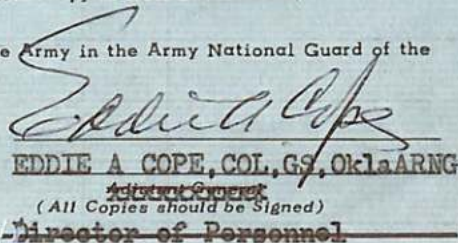 e Army in the Army National Guard of the
Eddie A Cope
EDDIE A COPE,COL,GS,OklaARNG
Adjutant General
(All Copies should be Signed)
-Director of Personnel